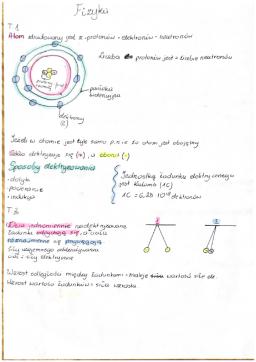 Fizyka
T.1
Atom zbudowany jest z protonów - elektronów - neutronów
Liczba protonów jest = liczbie neutronów
powłoka
elektrony
(e)
Jeżeli w atomie jest tyle samo p. n. to atom jest obojętny
Szkło elektryzuje się (+), a ebonit (-)
Sposoby elektryzowania
• dotyk
• pocieranie
• indukcja
Jednostką ładunku elektrycznego
jest kulomb (1C)
T.2
Dwa jednoimiennie naelektryzowane
ładunki odpychają się, a dwa
różnoimienne się przyciągają
Siły wzajemnego oddziaływania
siły elektryczne
Wzrost odległości między ładunkami = maleje wartość siły el.
Wzrost wartości ładunków = siła wzrasta